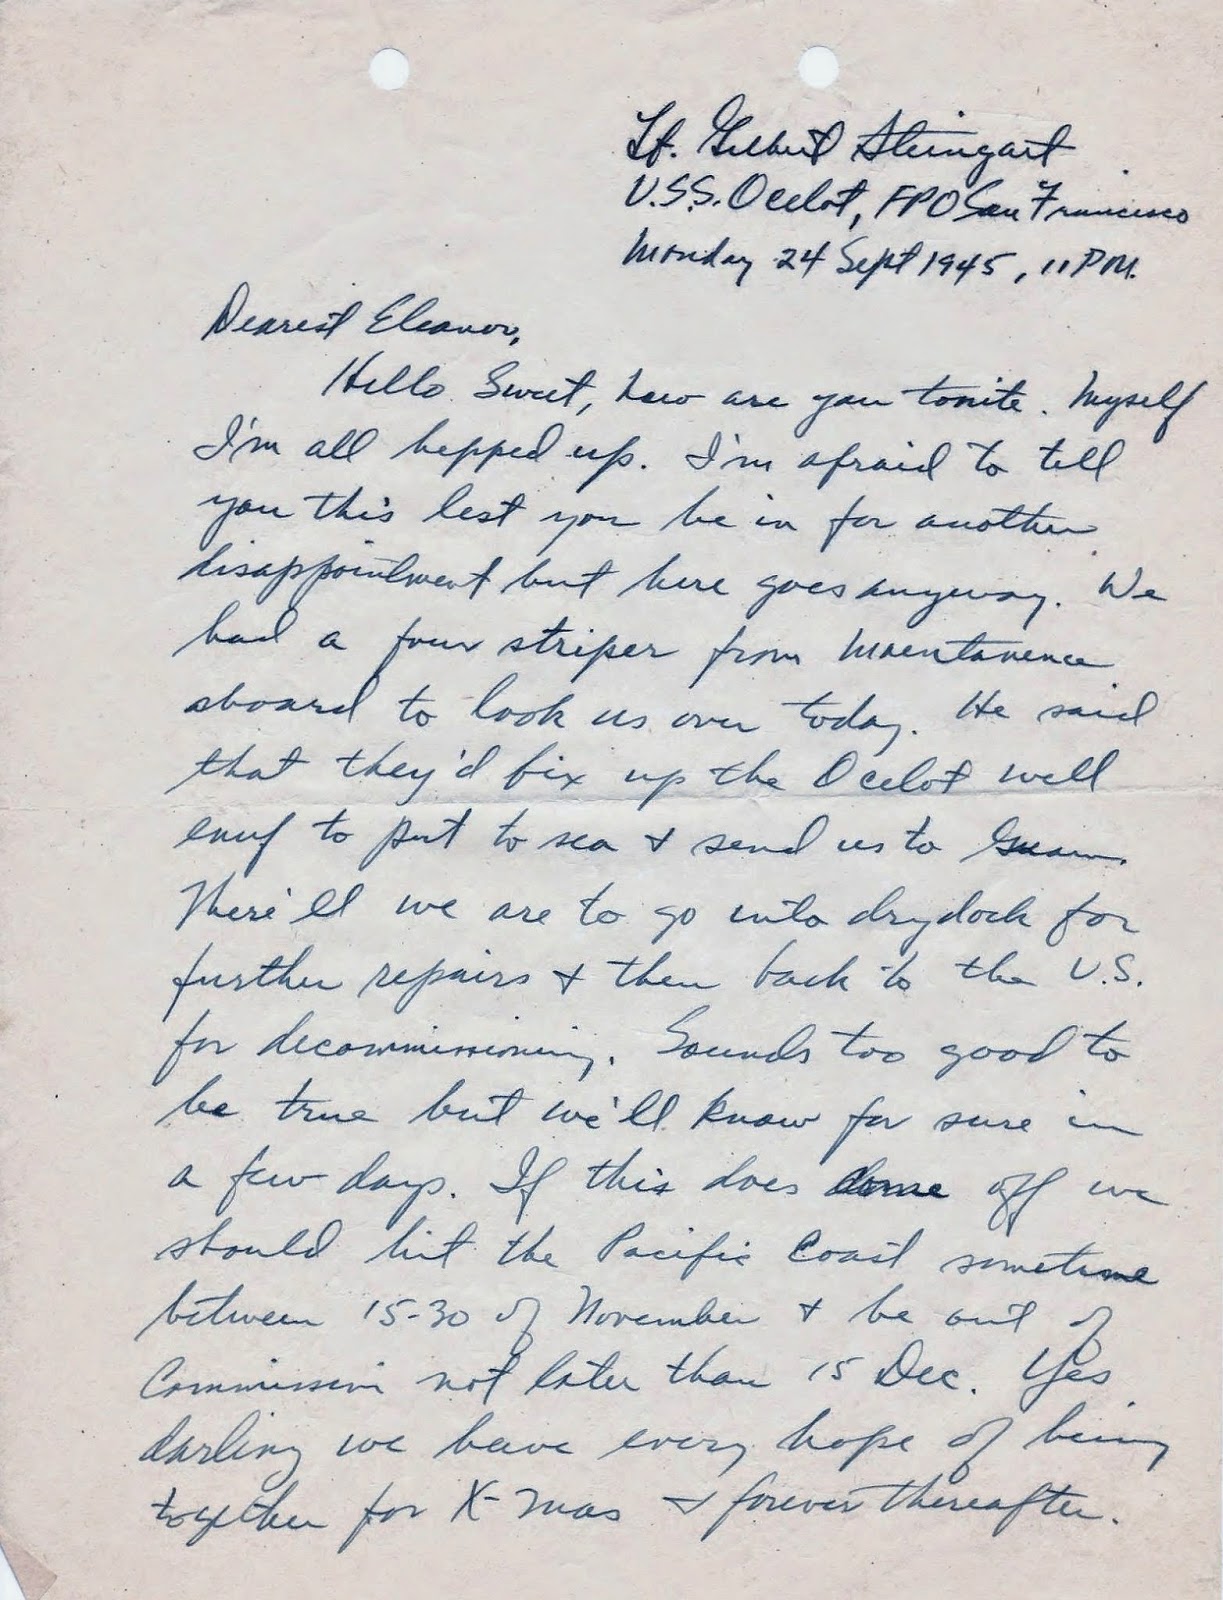 Lt. Gilbert Steingart
U.S.S. Ocelot, FPO San Francisco
Monday 24 Sept 1945, 11 PM.
Dearest Eleanor,
Hello Sweet, how are you tonite. Myself
I'm all hepped up. I'm afraid to tell
you this lest you be in for another
disappointment but here goes anyway. We
had a four striper from Maentanence
aboard to look us over today. He said
that they'd fix up the Ocelot well
enuf to put to sea & send us to Guam.
There'll we are to go into drydock for
further repairs & then back to the U.S.
for decommissioning. Sounds too good to
be true but we'll know for sure in
a few days. If this does come off we
should hit the Pacific Coast sometime
between 15-30 of November & be out of
Commission not later than 15 Dec. Yes
darling we have every hope of being
together for X-mas & forever thereafter.